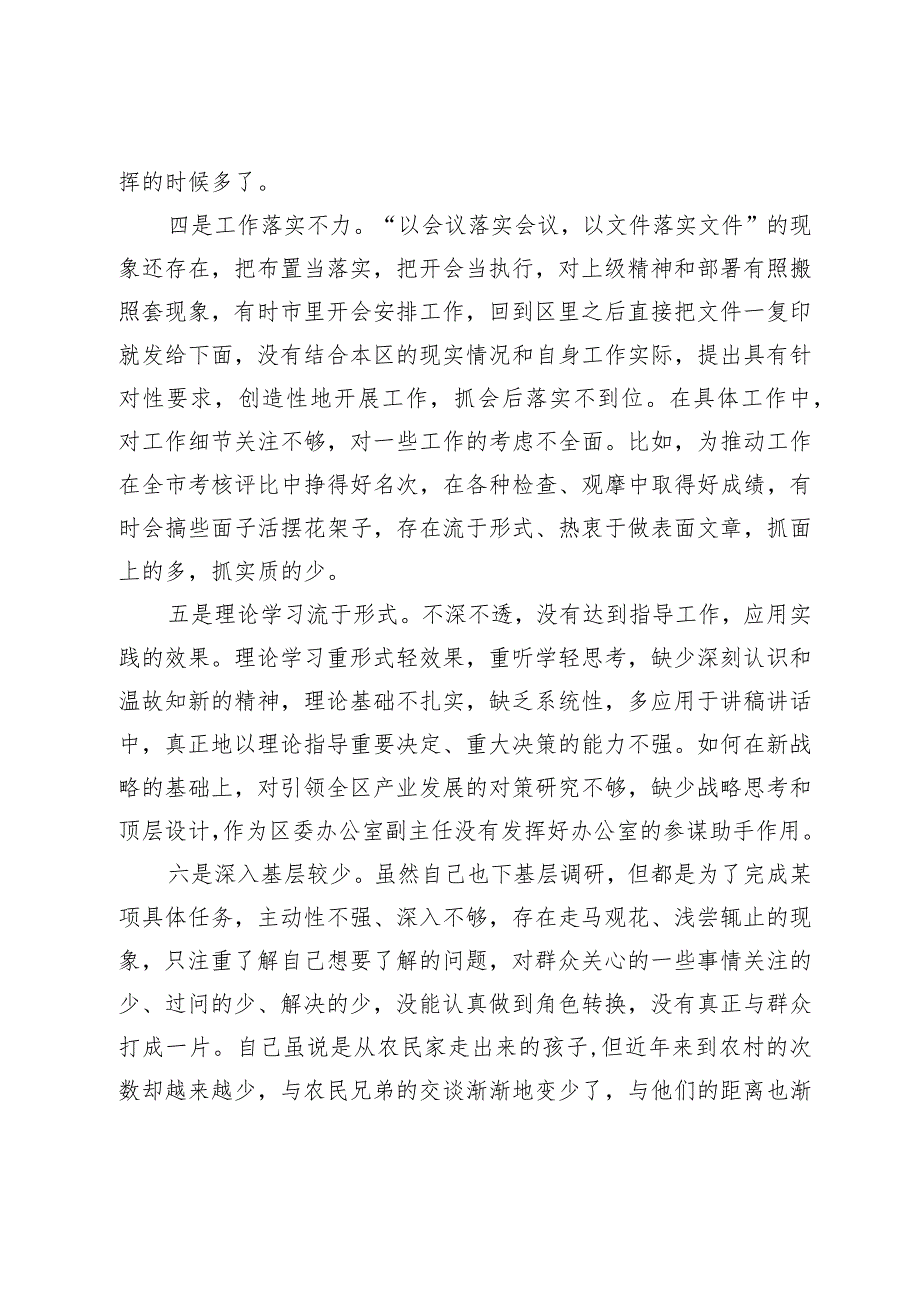 挥的时候多了。
四是工作落实不力。“以会议落实会议，以文件落实文件”的现
象还存在，把布置当落实，把开会当执行，对上级精神和部署有照搬
照套现象，有时市里开会安排工作，回到区里之后直接把文件一复印
就发给下面，没有结合本区的现实情况和自身工作实际，提出具有针
对性要求，创造性地开展工作，抓会后落实不到位。在具体工作中，
对工作细节关注不够，对一些工作的考虑不全面。比如，为推动工作
在全市考核评比中挣得好名次，在各种检查、观摩中取得好成绩，有
时会搞些面子活摆花架子，存在流于形式、热衷于做表面文章，抓面
上的多，抓实质的少。
五是理论学习流于形式。不深不透，没有达到指导工作，应用实
践的效果。理论学习重形式轻效果，重听学轻思考，缺少深刻认识和
温故知新的精神，理论基础不扎实，缺乏系统性，多应用于讲稿讲话
中，真正地以理论指导重要决定、重大决策的能力不强。如何在新战
略的基础上，对引领全区产业发展的对策研究不够，缺少战略思考和
顶层设计,作为区委办公室副主任没有发挥好办公室的参谋助手作用。
六是深入基层较少。虽然自己也下基层调研，但都是为了完成某
项具体任务，主动性不强、深入不够，存在走马观花、浅尝辄止的现
象，只注重了解自己想要了解的问题，对群众关心的一些事情关注的
少、过问的少、解决的少，没能认真做到角色转换，没有真正与群众
打成一片。自己虽说是从农民家走出来的孩子,但近年来到农村的次
数却越来越少，与农民兄弟的交谈渐渐地变少了，与他们的距离也渐